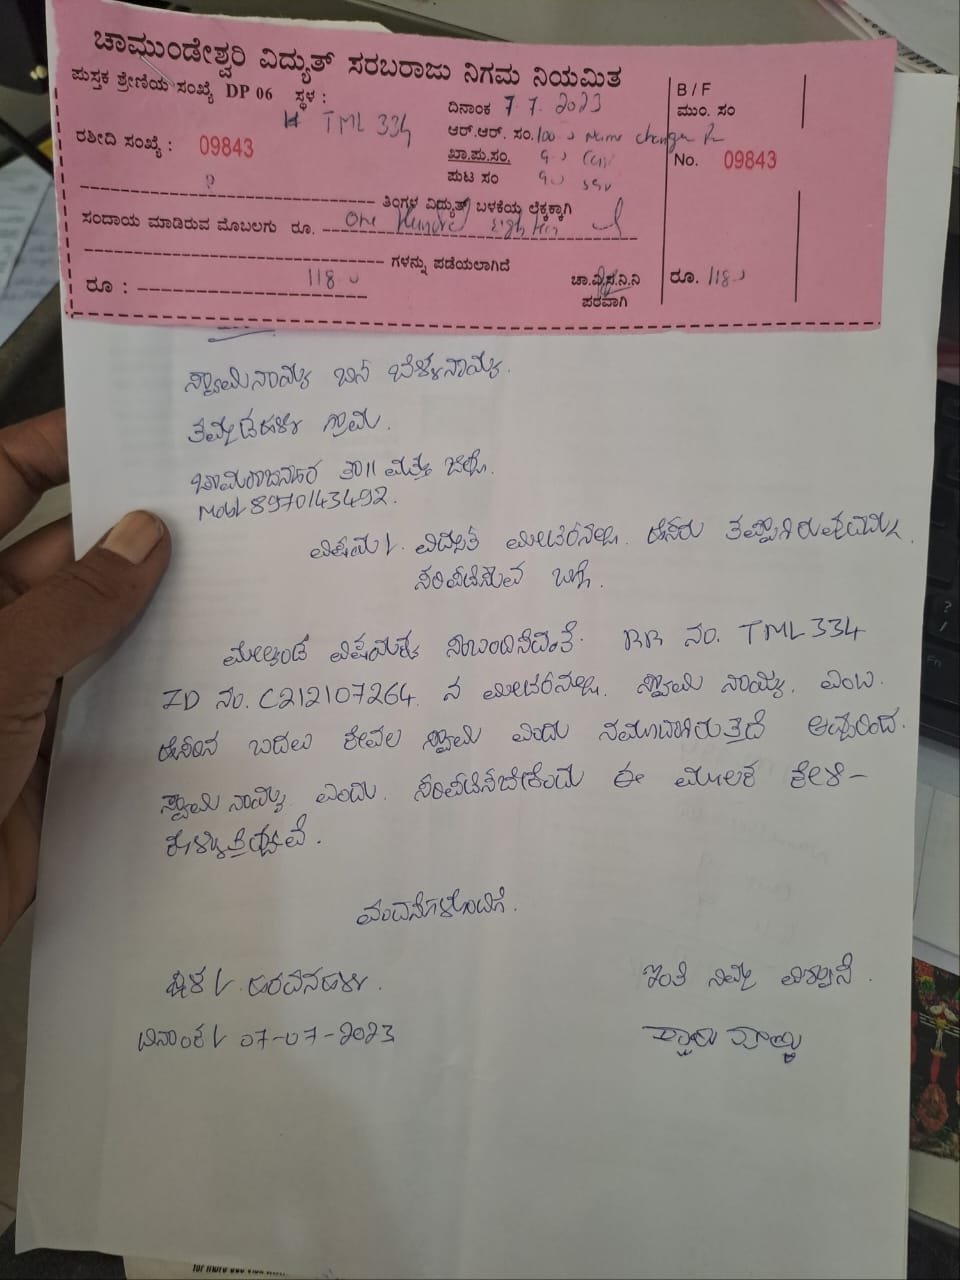 ಚಾಮುಂಡೇಶ್ವರಿ ವಿದ್ಯುತ್ ಸರಬರಾಜು ನಿಗಮ ನಿಯಮಿತ
ಪುಸ್ತಕ ಶ್ರೇಣಿಯ ಸಂಖ್ಯೆ DP 06 ಸ್ಥಳ :
TML 334
ರಶೀದಿ ಸಂಖ್ಯೆ : 09843
ದಿನಾಂಕ 7.7.2023
ಆರ್.ಆರ್. ಸಂ. 100 Name change
ಖಾ.ಪು.ಸಂ.
ಪುಟ ಸಂ
B / F
ಮುಂ. ಸಂ
No. 09843
ತಿಂಗಳ ವಿದ್ಯುತ್ ಬಳಕೆಯ ಲೆಕ್ಕಕ್ಕಾಗಿ
ಸಂದಾಯ ಮಾಡಿರುವ ಮೊಬಲಗು ರೂ. One Hundred Eighteen
ಗಳನ್ನು ಪಡೆಯಲಾಗಿದೆ
ರೂ : 118
ಚಾ.ವಿ.ಸ.ನಿ.ನಿ
ಪರವಾಗಿ
ರೂ. 118
ಸ್ವಾಮಿನಾಯ್ಕ ಬಿನ್ ಬೆಳ್ಳನಾಯ್ಕ.
ಗ್ರಾಮ.
ಚಾಮರಾಜನಗರ ತಾ|| ಮತ್ತು ಜಿಲ್ಲೆ.
Mobl 8970143492.
ವಿಷಯ/. ವಿದ್ಯುತ್ ಮೀಟರಿನಲ್ಲಿ. ಹೆಸರು ತಪ್ಪಾಗಿರುವುದನ್ನು
ಸರಿಪಡಿಸುವ ಬಗ್ಗೆ.
ಮೇಲ್ಕಂಡ ವಿಷಯಕ್ಕೆ ಸಂಬಂದಿಸಿದಂತೆ. RR ನಂ. TML 334
ID ನಂ. C212107264. ನ ಮೀಟರಿನಲ್ಲಿ. ಸ್ವಾಮಿ ನಾಯ್ಕ. ಎಂಬ.
ಹೆಸರಿನ ಬದಲು ಕೇವಲ ಸ್ವಾಮಿ ಎಂದು ನಮೂದಾಗಿರುತ್ತದೆ ಆದ್ದರಿಂದ.
ಸ್ವಾಮಿ ನಾಯ್ಕ ಎಂದು. ಸರಿಪಡಿಸಬೇಕೆಂದು ಈ ಮೂಲಕ ಕೇಳಿ-
ಕೊಳ್ಳುತ್ತಿದ್ದೇವೆ.
ವಂದನೆಗಳೊಂದಿಗೆ.
ಸ್ಥಳ/. ಹರವನಹಳ್ಳಿ.
ಇಂತಿ ನಿಮ್ಮ ವಿಶ್ವಾಸಿ.
ದಿನಾಂಕ/ 07-07-2023
ಸ್ವಾಮಿ ನಾಯ್ಕ